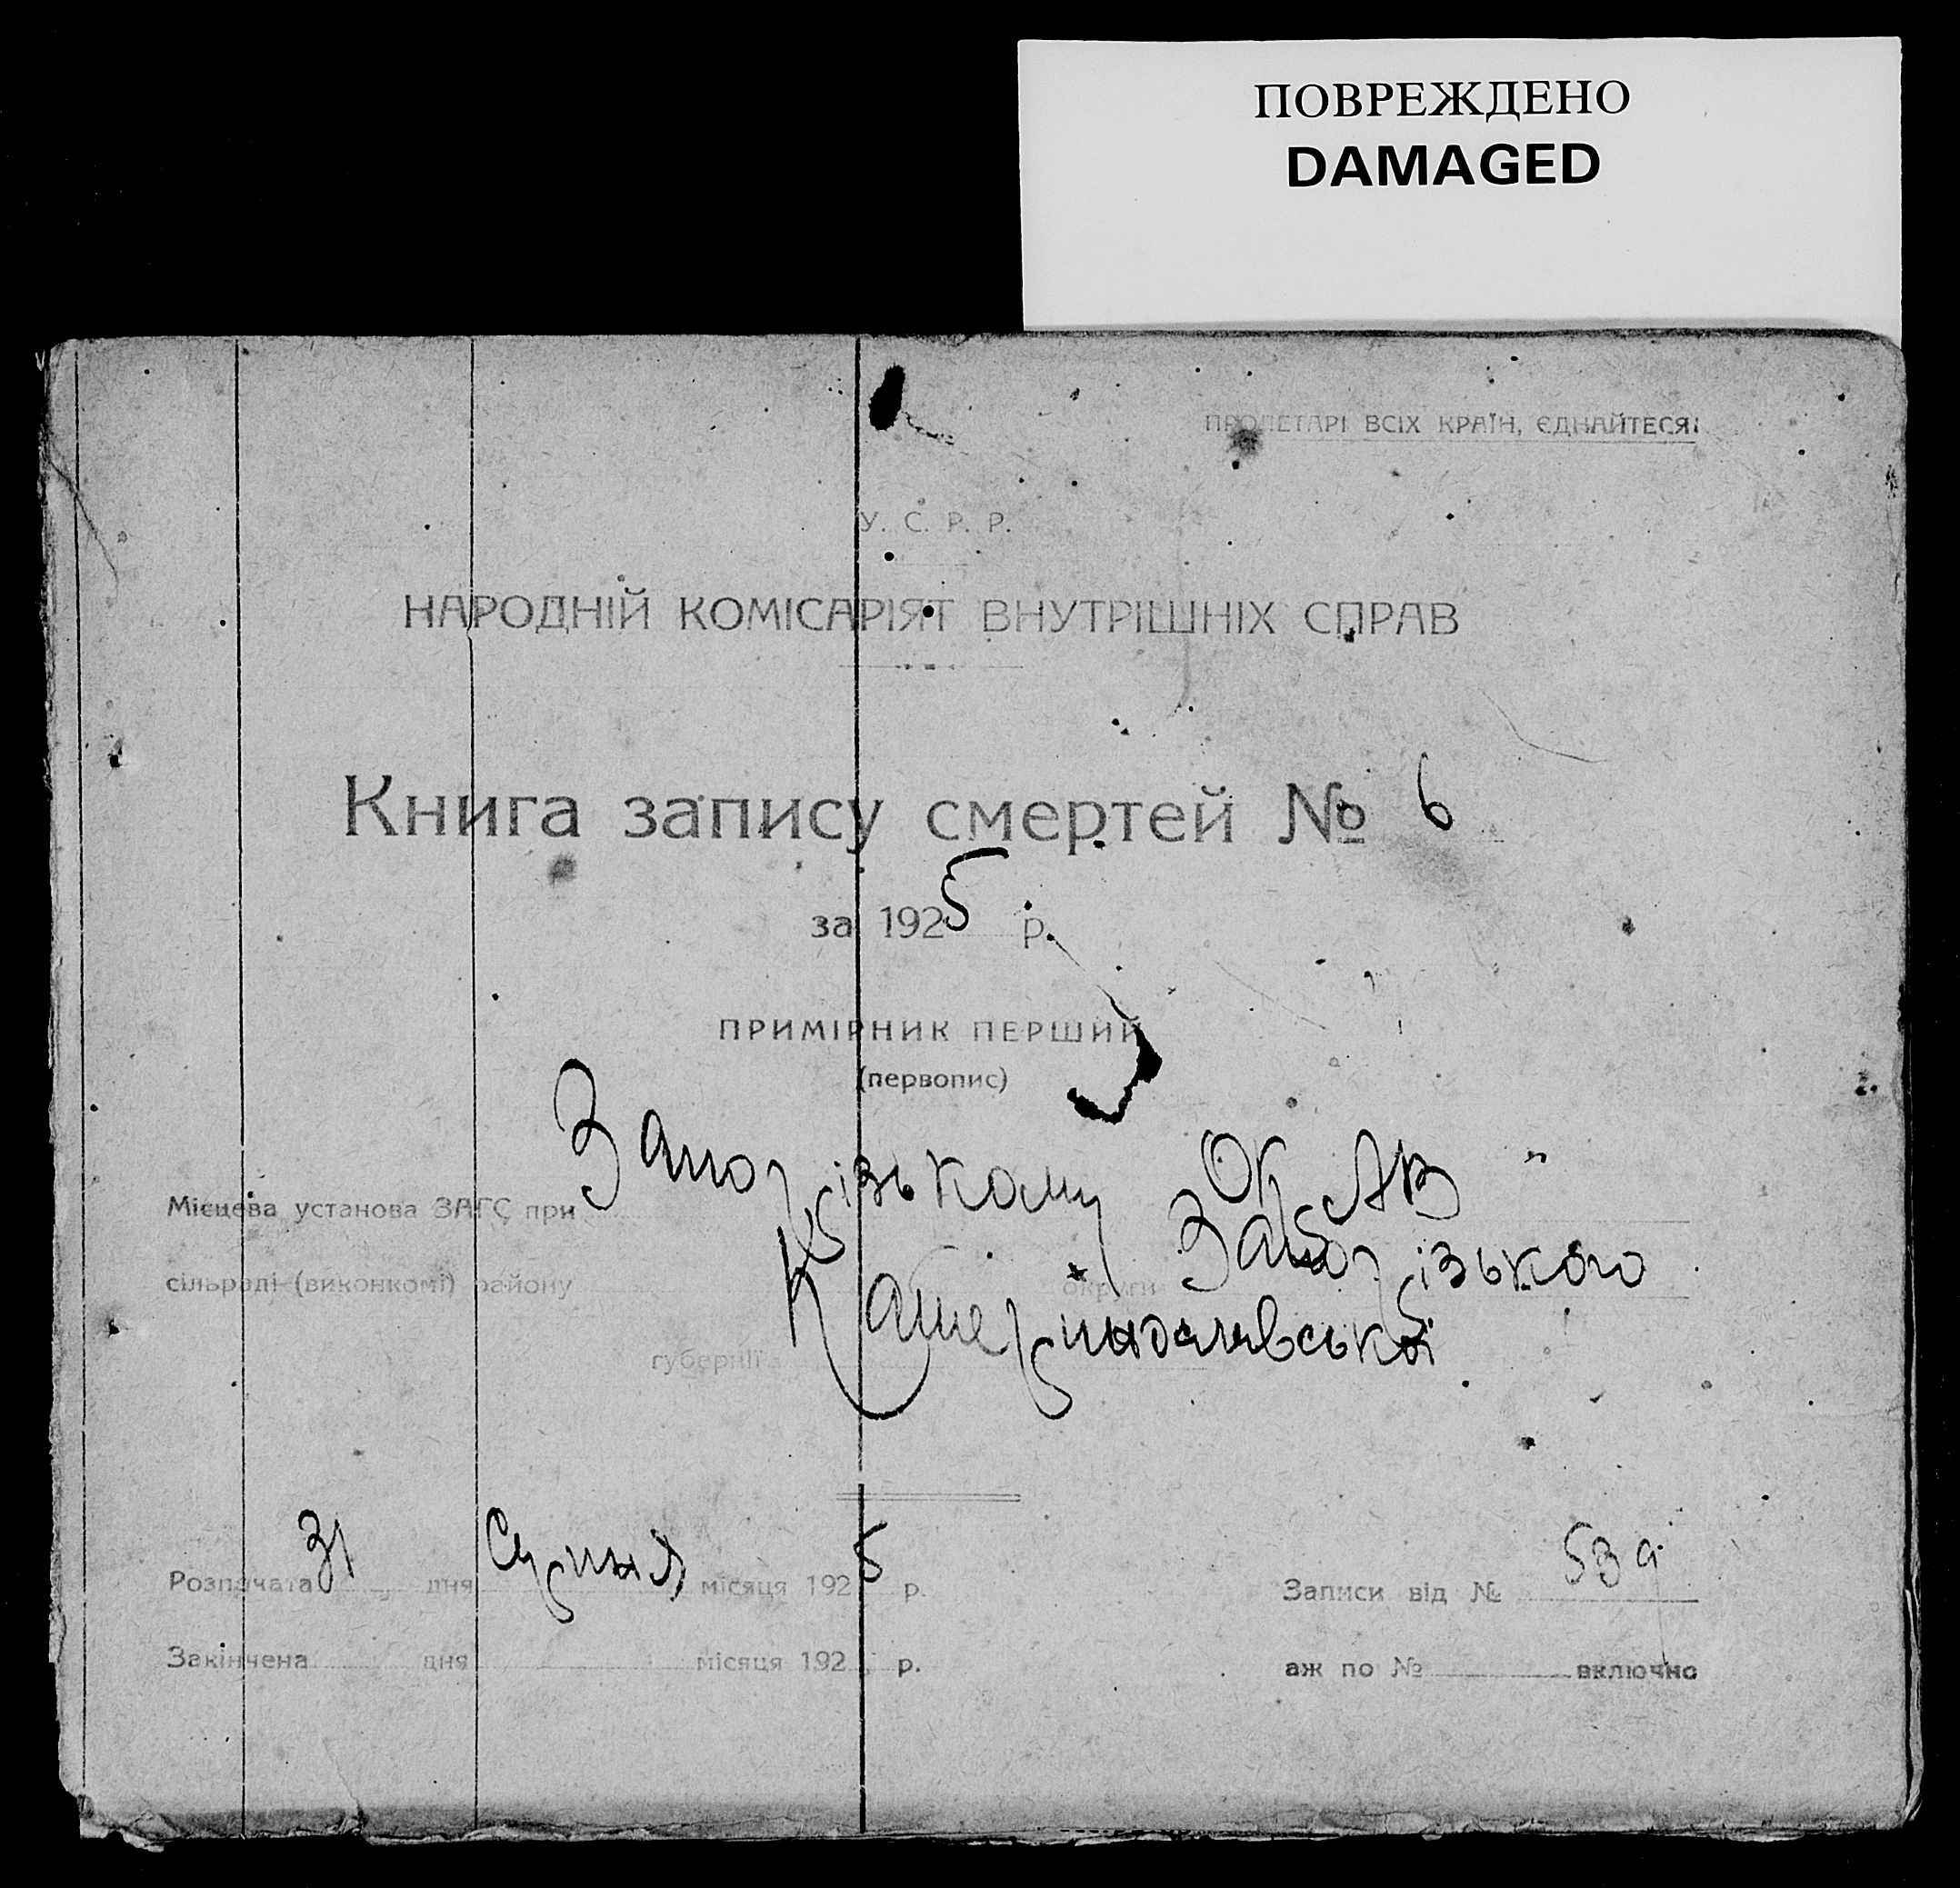 ПОВРЕЖДЕНО
DAMAGED
ПРОЛЕТАРІ ВСІХ КРАЇН, ЄДНАЙТЕСЯ!
У. С. Р. Р.
НАРОДНІЙ КОМІСАРІЯТ ВНУТРІШНІХ СПРАВ
Книга запису смертей № 6
за 1925 р.
ПРИМІРНИК ПЕРШИЙ
(первопис)
Місцева установа ЗАГС при Запорізькому
сільраді (виконкомі) району округи Запорізького
губернії Катеринославської
Розпочата 31 дня Серпня місяця 1925 р. Записи від № 539
Закінчена дня місяця 192 р. аж по № включно